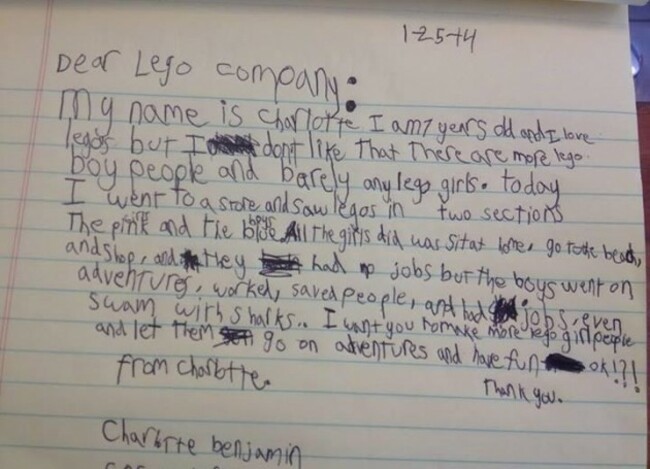 1-25-14
Dear Lego company:
My name is Charlotte I am 7 years old and I love
legos but I dont like that There are more lego
boy people and barely any lego girls. today
I went to a store and saw legos in two sections
The pink girls and the blue boys All the girls did was sit at home, go to the beach,
and shop, and they had no jobs but the boys went on
adventures, worked, saved people, and had jobs, even
swam with sharks.. I want you to make more lego girl people
and let them go on adventures and have fun ok!?!
from Charlotte. Thank you.
Charlotte benjamin